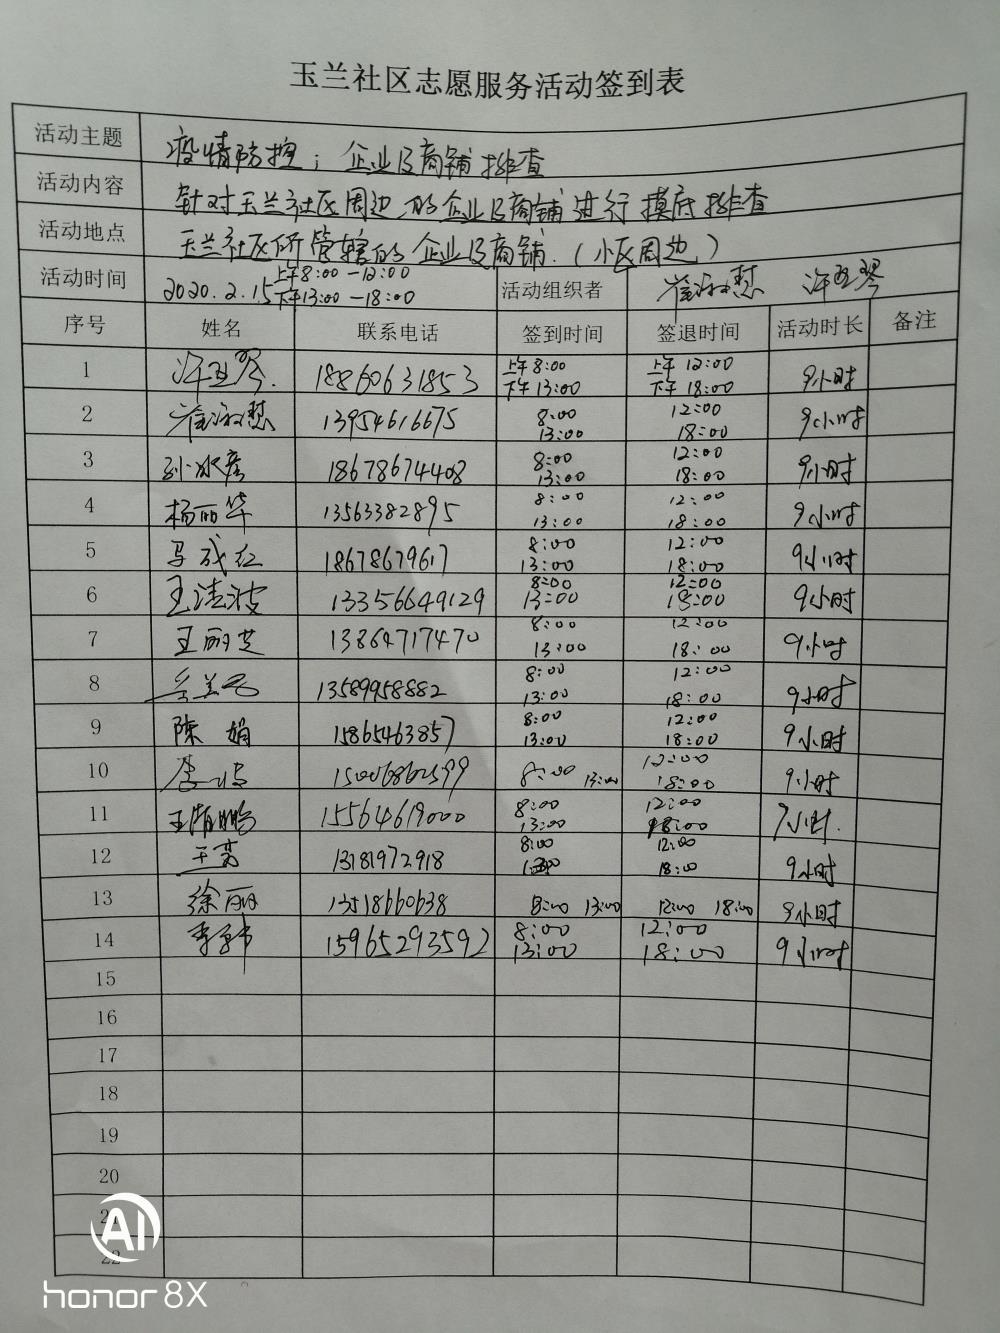 玉兰社区志愿服务活动签到表
活动主题 疫情防控；企业及商铺排查
活动内容 针对玉兰社区周边的企业及商铺进行摸底排查
活动地点 玉兰社区所管辖的企业及商铺.（小区周边）
活动时间 2020.2.15 上午8:00-12:00 下午13:00-18:00 活动组织者
序号 姓名 联系电话 签到时间 签退时间 活动时长 备注
1 18860631853 上午8:00 下午13:00 上午12:00 下午18:00 9小时
2 13954616675 8:00 13:00 12:00 18:00 9小时
3 18678674408 8:00 13:00 12:00 18:00 9小时
4 杨丽华 13563382895 8:00 13:00 12:00 18:00 9小时
5 马成红 18678679617 8:00 13:00 12:00 18:00 9小时
6 13356649129 8:00 13:00 12:00 18:00 9小时
7 王丽芝 13864717470 8:00 13:00 12:00 18:00 9小时
8 13589958882 8:00 13:00 12:00 18:00 9小时
9 陈娟 15865463857 8:00 13:00 12:00 18:00 9小时
10 8:00 13:00 12:00 18:00 9小时
11 15564619000 8:00 13:00 12:00 18:00 小时.
12 13181972918 8:00 12:00 18:00 9小时
13 徐丽 13518660638 8:00 13:00 12:00 18:00 9小时
14 15965293592 8:00 13:00 12:00 18:00 9小时
15
16
17
18
19
20
21
22
AI
honor 8X